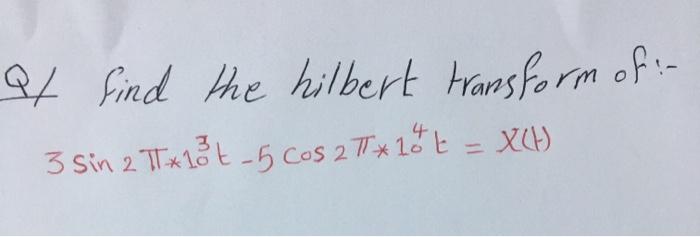 Q/ find the hilbert transform of:-
3 sin 2 π*10³t - 5 cos 2 π*10⁴t = X(t)